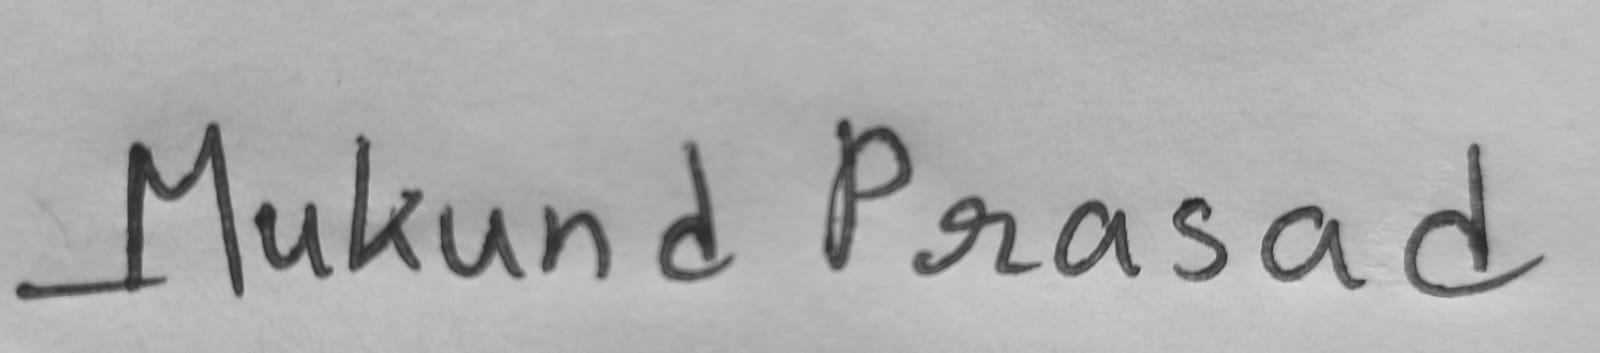 Mukund Prasad